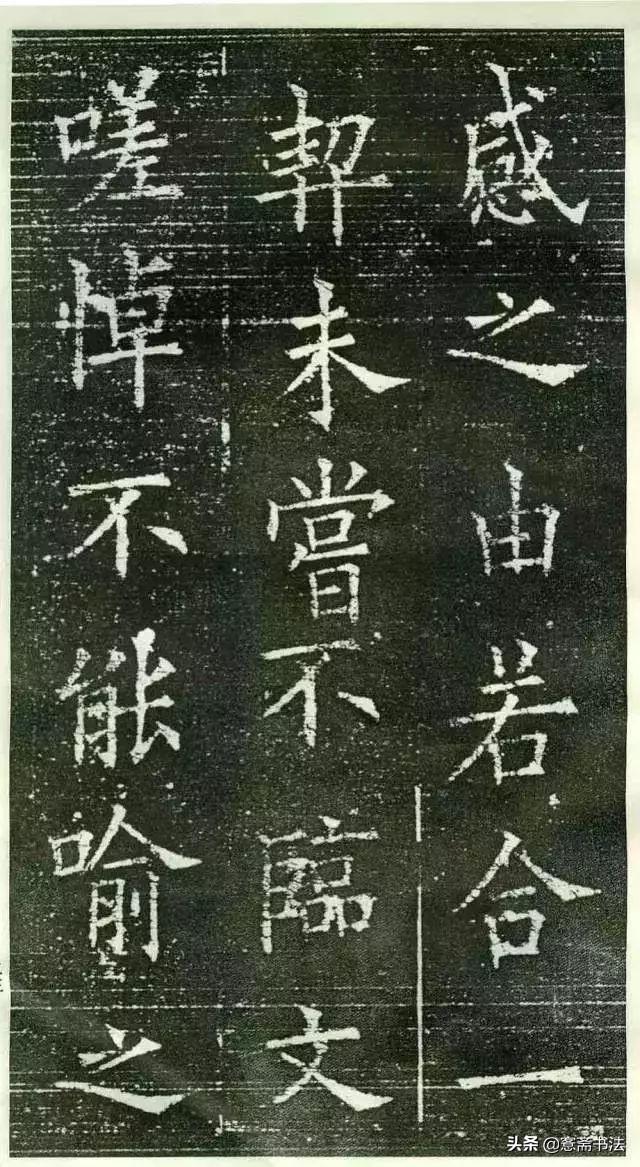 感之由若合一
契未嘗不臨文
嗟悼不能喻之
头条@窓斋书法